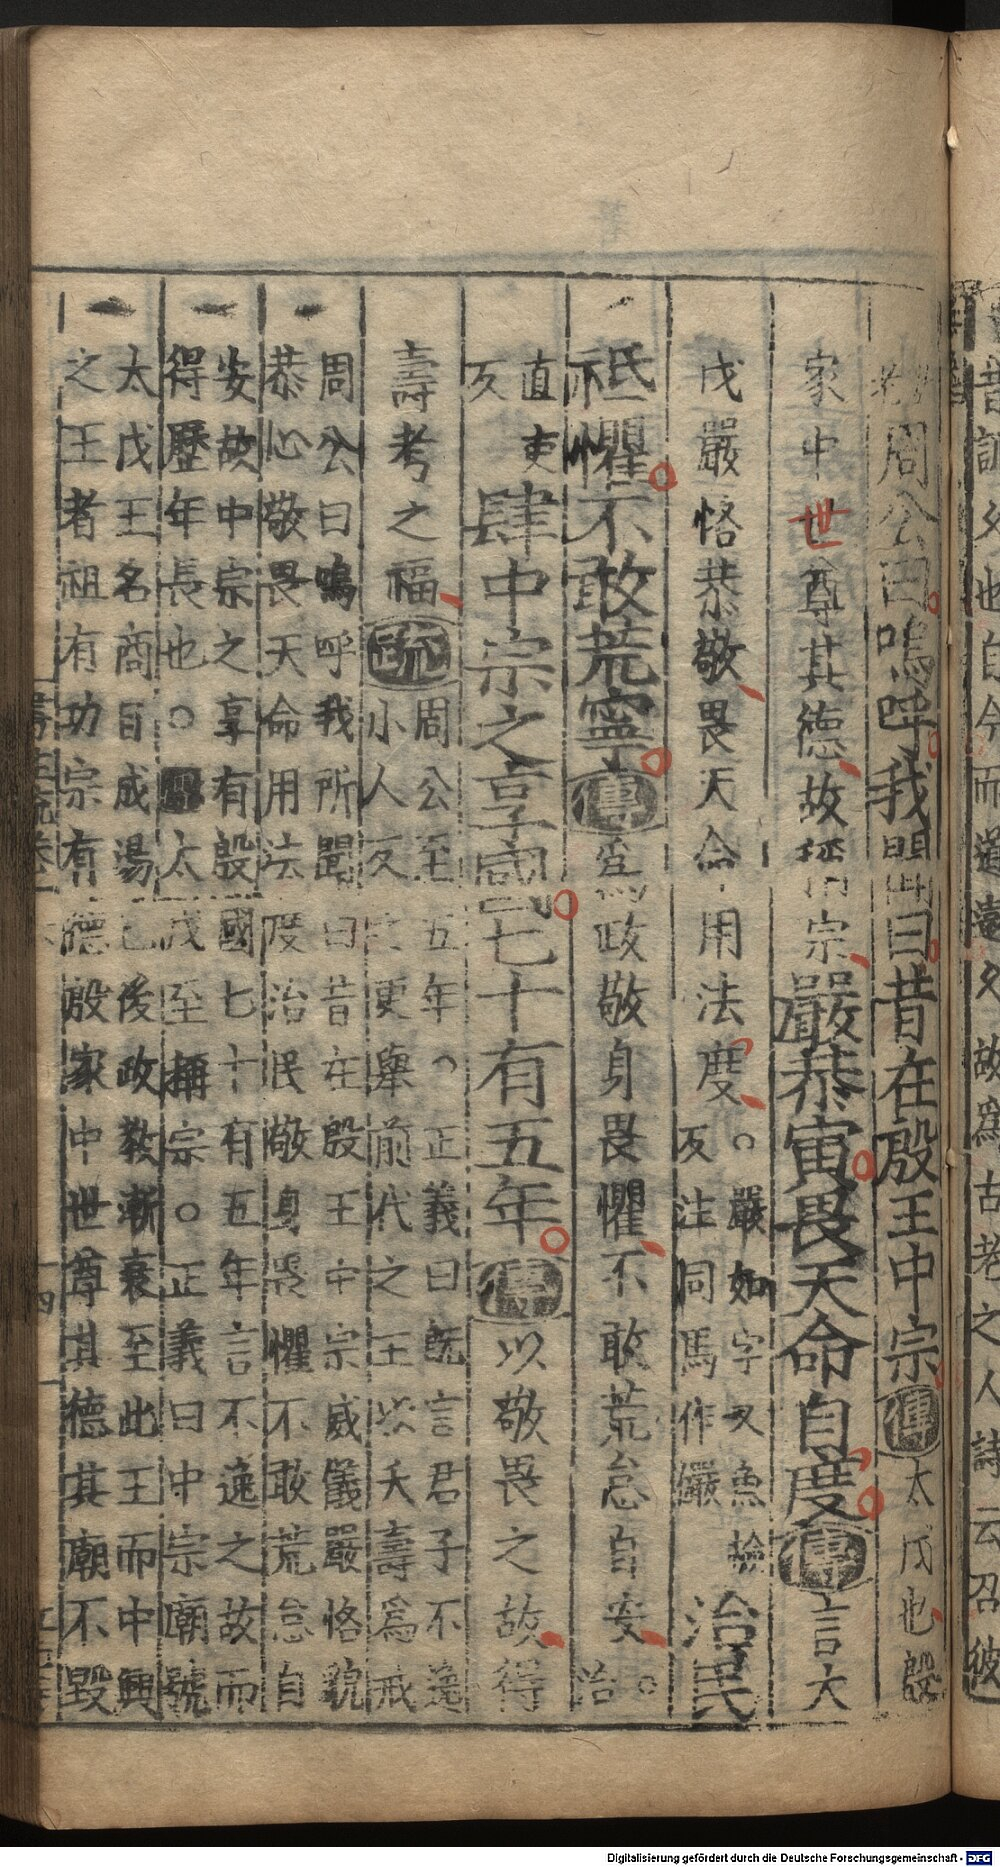 昔訓久也自今而道遠久故為古老之人詩云召彼
故老周公曰嗚呼我聞曰昔在殷王中宗傳太戊也殷
家中世尊其德故稱宗嚴恭寅畏天命自度傳言太
戊嚴恪恭敬畏天命用法度○嚴如字又魚檢
反注同馬作儼
治民
祗懼不敢荒寧傳為政敬身畏懼不敢荒怠自安○治
直吏
反
肆中宗之享國七十有五年傳以敬畏之故得
壽考之福疏
周公至五年○正義曰既言君子不逸
小人反之更舉前代之王以夭壽為戒
周公曰嗚呼我所聞曰昔在殷王中宗威儀嚴恪貌
恭心敬畏天命用法度治民敬身畏懼不敢荒怠自
安故中宗之享有殷國七十有五年言不逸之故而
得歷年長也○傳太戊至稱宗○正義曰中宗廟號
太戊王名商自成湯已後政教漸衰至此王而中興
之王者祖有功宗有德殷家中世尊其德其廟不毀
Digitalisierung gefördert durch die Deutsche Forschungsgemeinschaft - DFG